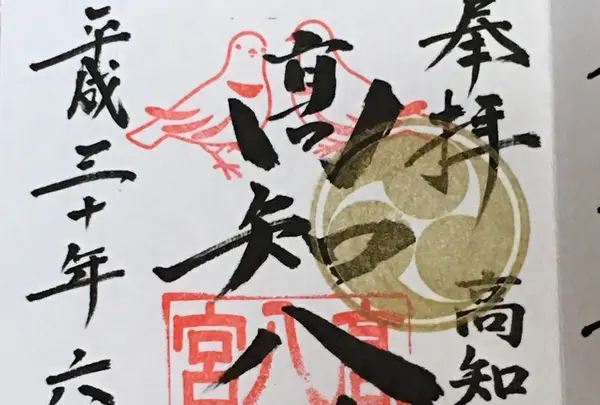 奉拝 高知
高知八
平成三十年六
高
八
宮